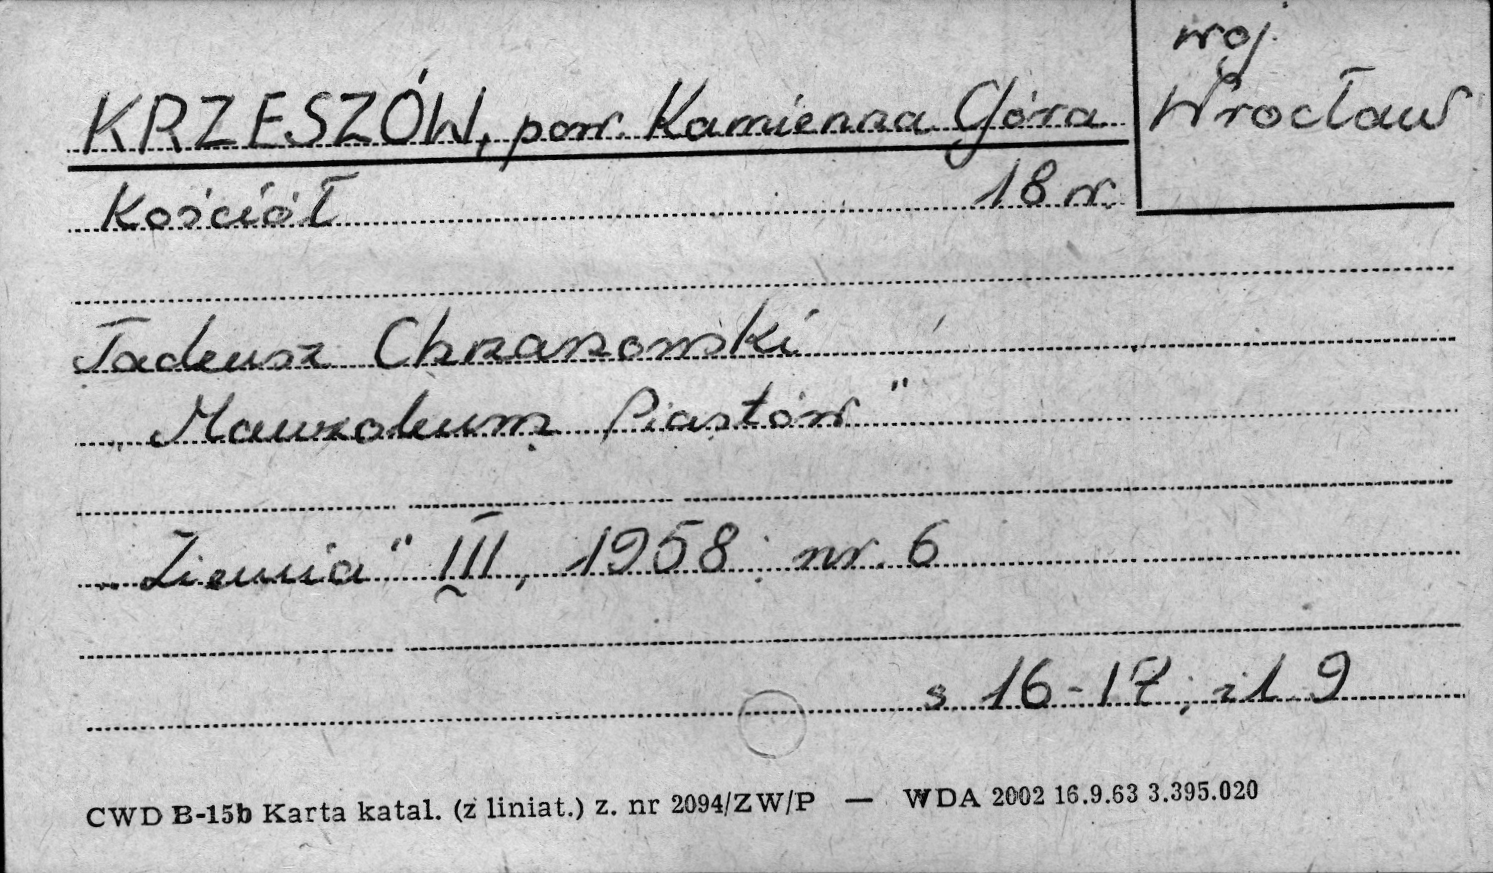 woj.
Wrocław
KRZESZÓW, pow. Kamienna Góra
Kościół 18 w.
Tadeusz Chrzanowski
„Mauzoleum Piastów"
„Ziemia" III, 1958; nr. 6
s 16-17; il 9
CWD B-15b Karta katal. (z liniat.) z. nr 2094/ZW/P — WDA 2002 16.9.63 3.395.020